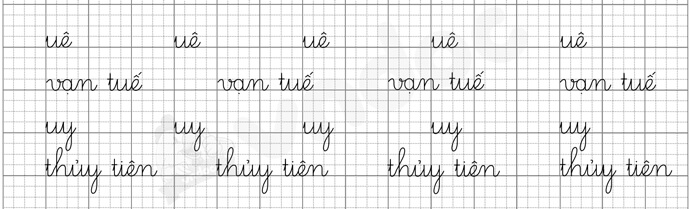 uê uê uê uê uê
vạn tuế vạn tuế vạn tuế vạn tuế
uy uy uy uy uy
thủy tiên thủy tiên thủy tiên thủy tiên